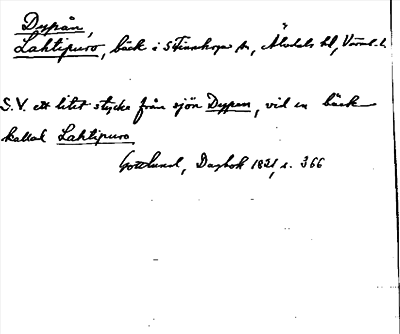 Dypån,
Lahtipuro, bäck i S Finnskoga sn, Älvdals hd, Värml. l.
S.V. ett litet stycke från sjön Dypen, vid en bäck
kallad Lahtipuro.
Gottlund, Dagbok 1821, s. 366